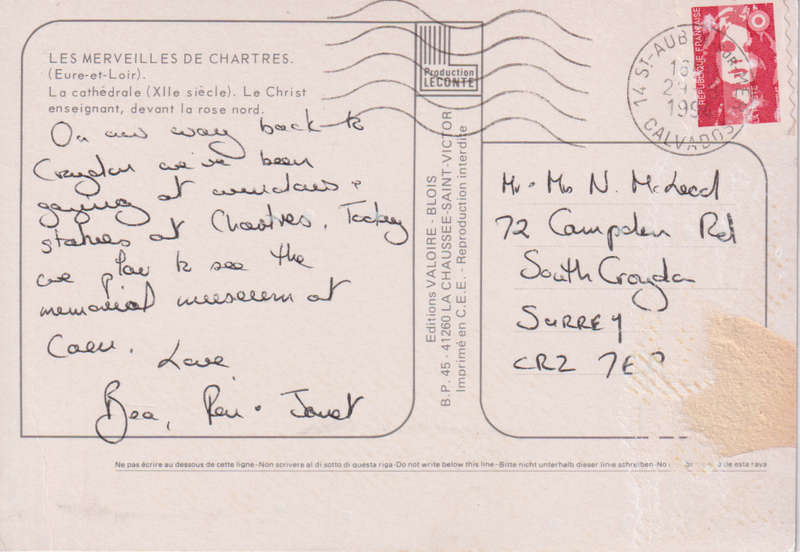 LES MERVEILLES DE CHARTRES.
(Eure-et-Loir).
La cathédrale (XIIe siècle). Le Christ
enseignant, devant la rose nord.
On our way back to
Croydon we've been
gazing at windows &
statues at Chartres. Today
we plan to see the
memorial museum at
Caen. Love
Bea, Janet
Production
LECONTE
Editions VALOIRE - BLOIS
B.P. 45 - 41260 LA CHAUSSEE-SAINT-VICTOR
Imprimé en C.E.E. - Reproduction interdite
14 ST-AUB
CALVADOS
REPUBLIQUE FRANÇAISE
Mr. Mrs N. McLeod
72 Campden Rd
South Croydon
SURREY
CR2 7E
Ne pas écrire au dessous de cette ligne - Non scrivere al di sotto di questa riga - Do not write below this line - Bitte nicht unterhalb dieser linie schreiben - No de esta raya